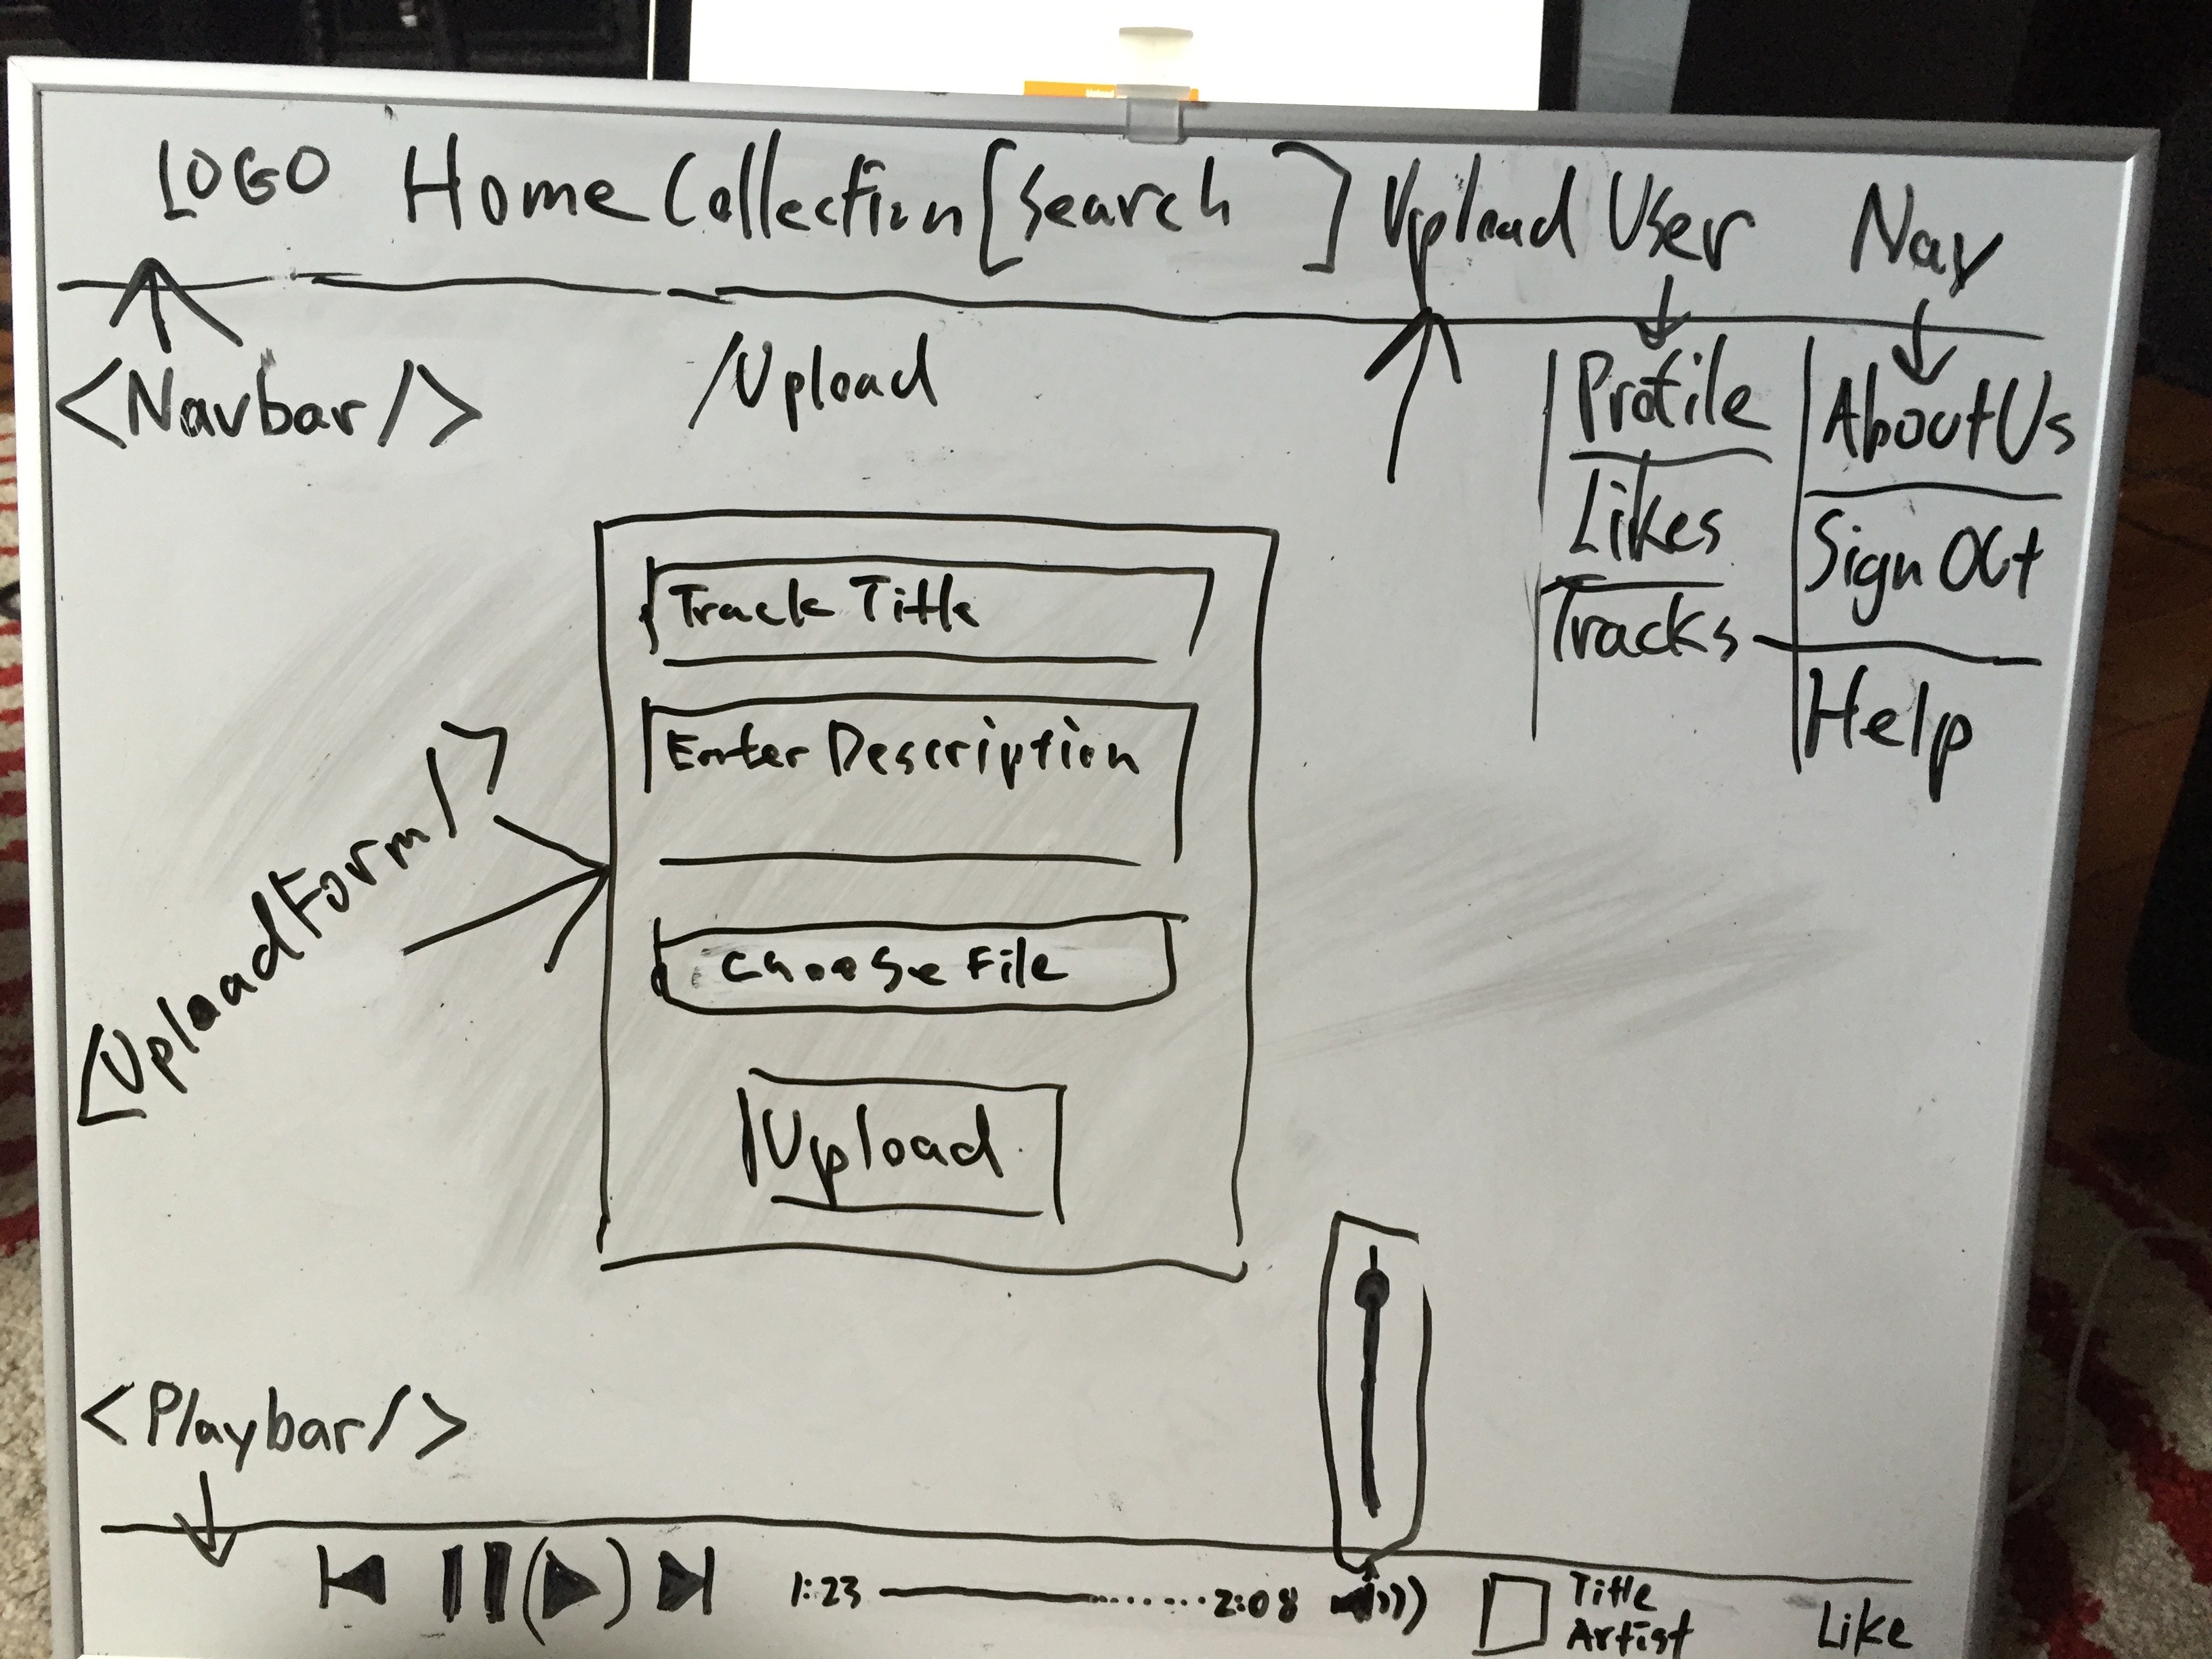 LOGO Home Collection [Search ] Upload User Nav
<Navbar/>
/Upload
Profile
Likes
Tracks
About Us
Sign Out
Help
Track Title
Enter Description
Choose File
Upload
<UploadForm/>
<Playbar/>
1:23 2:08
Title
Artist
Like